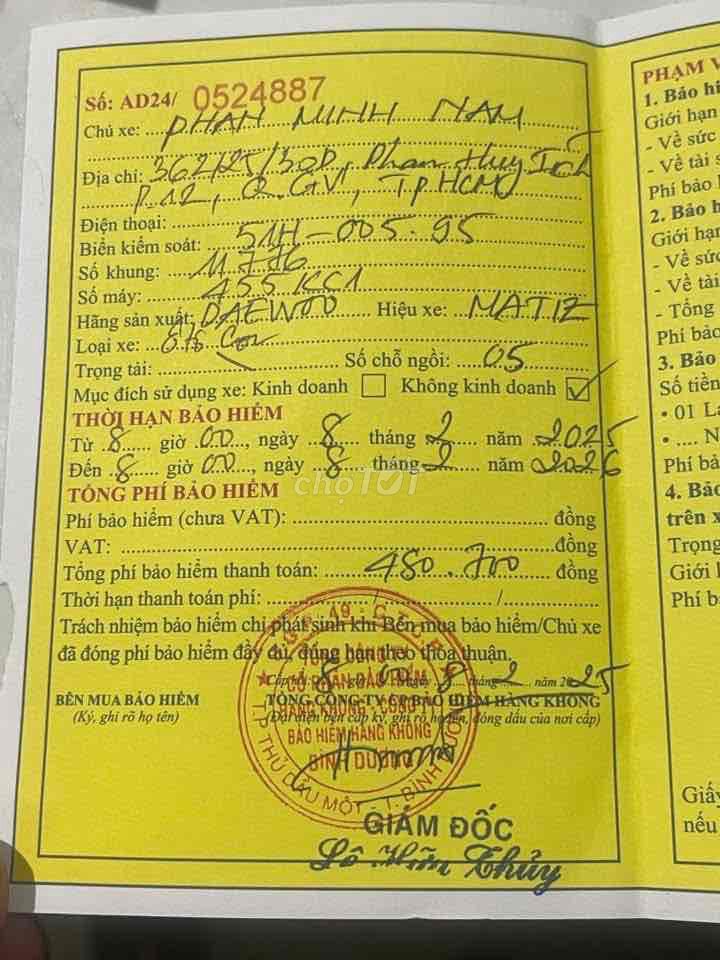 Số: AD24/ 0524887
Chủ xe: PHAN MINH NAM
Địa chỉ: 362/25/30D, Phan Huy Ích
P.12, Q.GV, TP.HCM
Điện thoại:
Biển kiểm soát: 51H-005.95
Số khung: 11776
Số máy: 455KC1
Hãng sản xuất: DAEWOO Hiệu xe: MATIZ
Loại xe: ô tô con
Trọng tải: Số chỗ ngồi: 05
Mục đích sử dụng xe: Kinh doanh Không kinh doanh
THỜI HẠN BẢO HIỂM
Từ 8 giờ 00, ngày 8 tháng 2 năm 2025
Đến 8 giờ 00, ngày 8 tháng 2 năm 2026
chợTỐT
TỔNG PHÍ BẢO HIỂM
Phí bảo hiểm (chưa VAT): đồng
VAT: đồng
Tổng phí bảo hiểm thanh toán: 480.700 đồng
Thời hạn thanh toán phí: / /
Trách nhiệm bảo hiểm chỉ phát sinh khi Bên mua bảo hiểm/Chủ xe
đã đóng phí bảo hiểm đầy đủ, đúng hạn theo thỏa thuận.
8 2 năm 2025
BÊN MUA BẢO HIỂM
(Ký, ghi rõ họ tên)
TỔNG CÔNG TY CP BẢO HIỂM HÀNG KHÔNG
(Đại diện bên cấp ký, ghi rõ họ tên, đóng dấu của nơi cấp)
TỔNG CÔNG TY
CỔ PHẦN BẢO HIỂM
HÀNG KHÔNG
BẢO HIỂM HÀNG KHÔNG
BÌNH DƯƠNG
TP THỦ DẦU MỘT - T. BÌNH DƯƠNG
GIÁM ĐỐC
Lô Hữu Thủy
PHẠM V
1. Bảo hi
Giới hạn
- Về sức
- Về tài s
Phí bảo
2. Bảo h
Giới hạn
- Về sức
- Về tài
- Tổng
Phí bảo
3. Bảo
Số tiền
• 01 Lá
• .... N
Phí bả
4. Bảo
trên x
Trọng
Giới
Phí b
Giấy
nếu